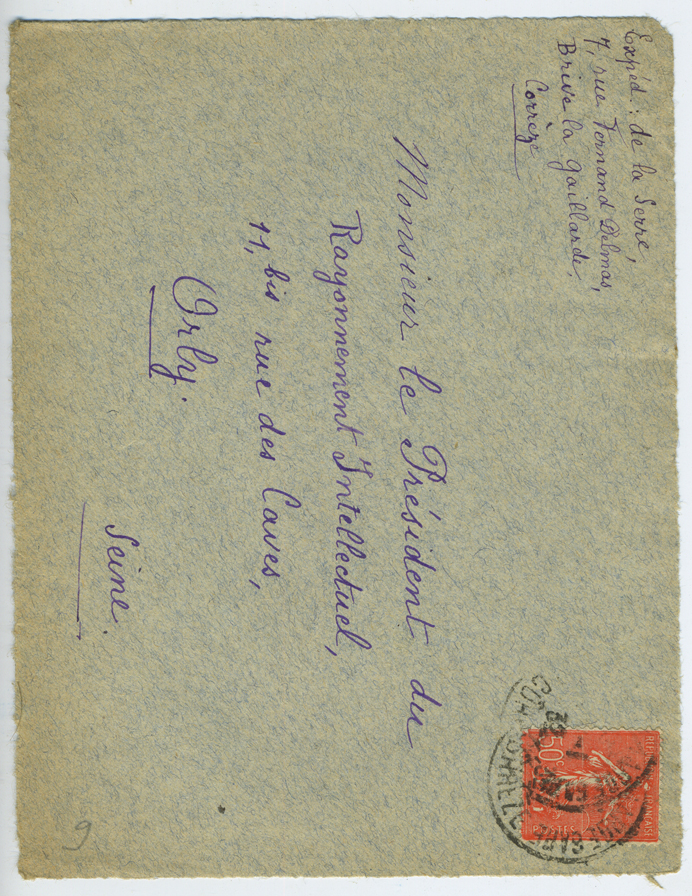 Expéd: de la Serre,
7, rue Fernand Delmas,
Brive la Gaillarde,
Corrèze
Monsieur le Président du
Rayonnement Intellectuel,
11, bis rue des Caves,
Orly.
Seine.
50c
POSTES
9